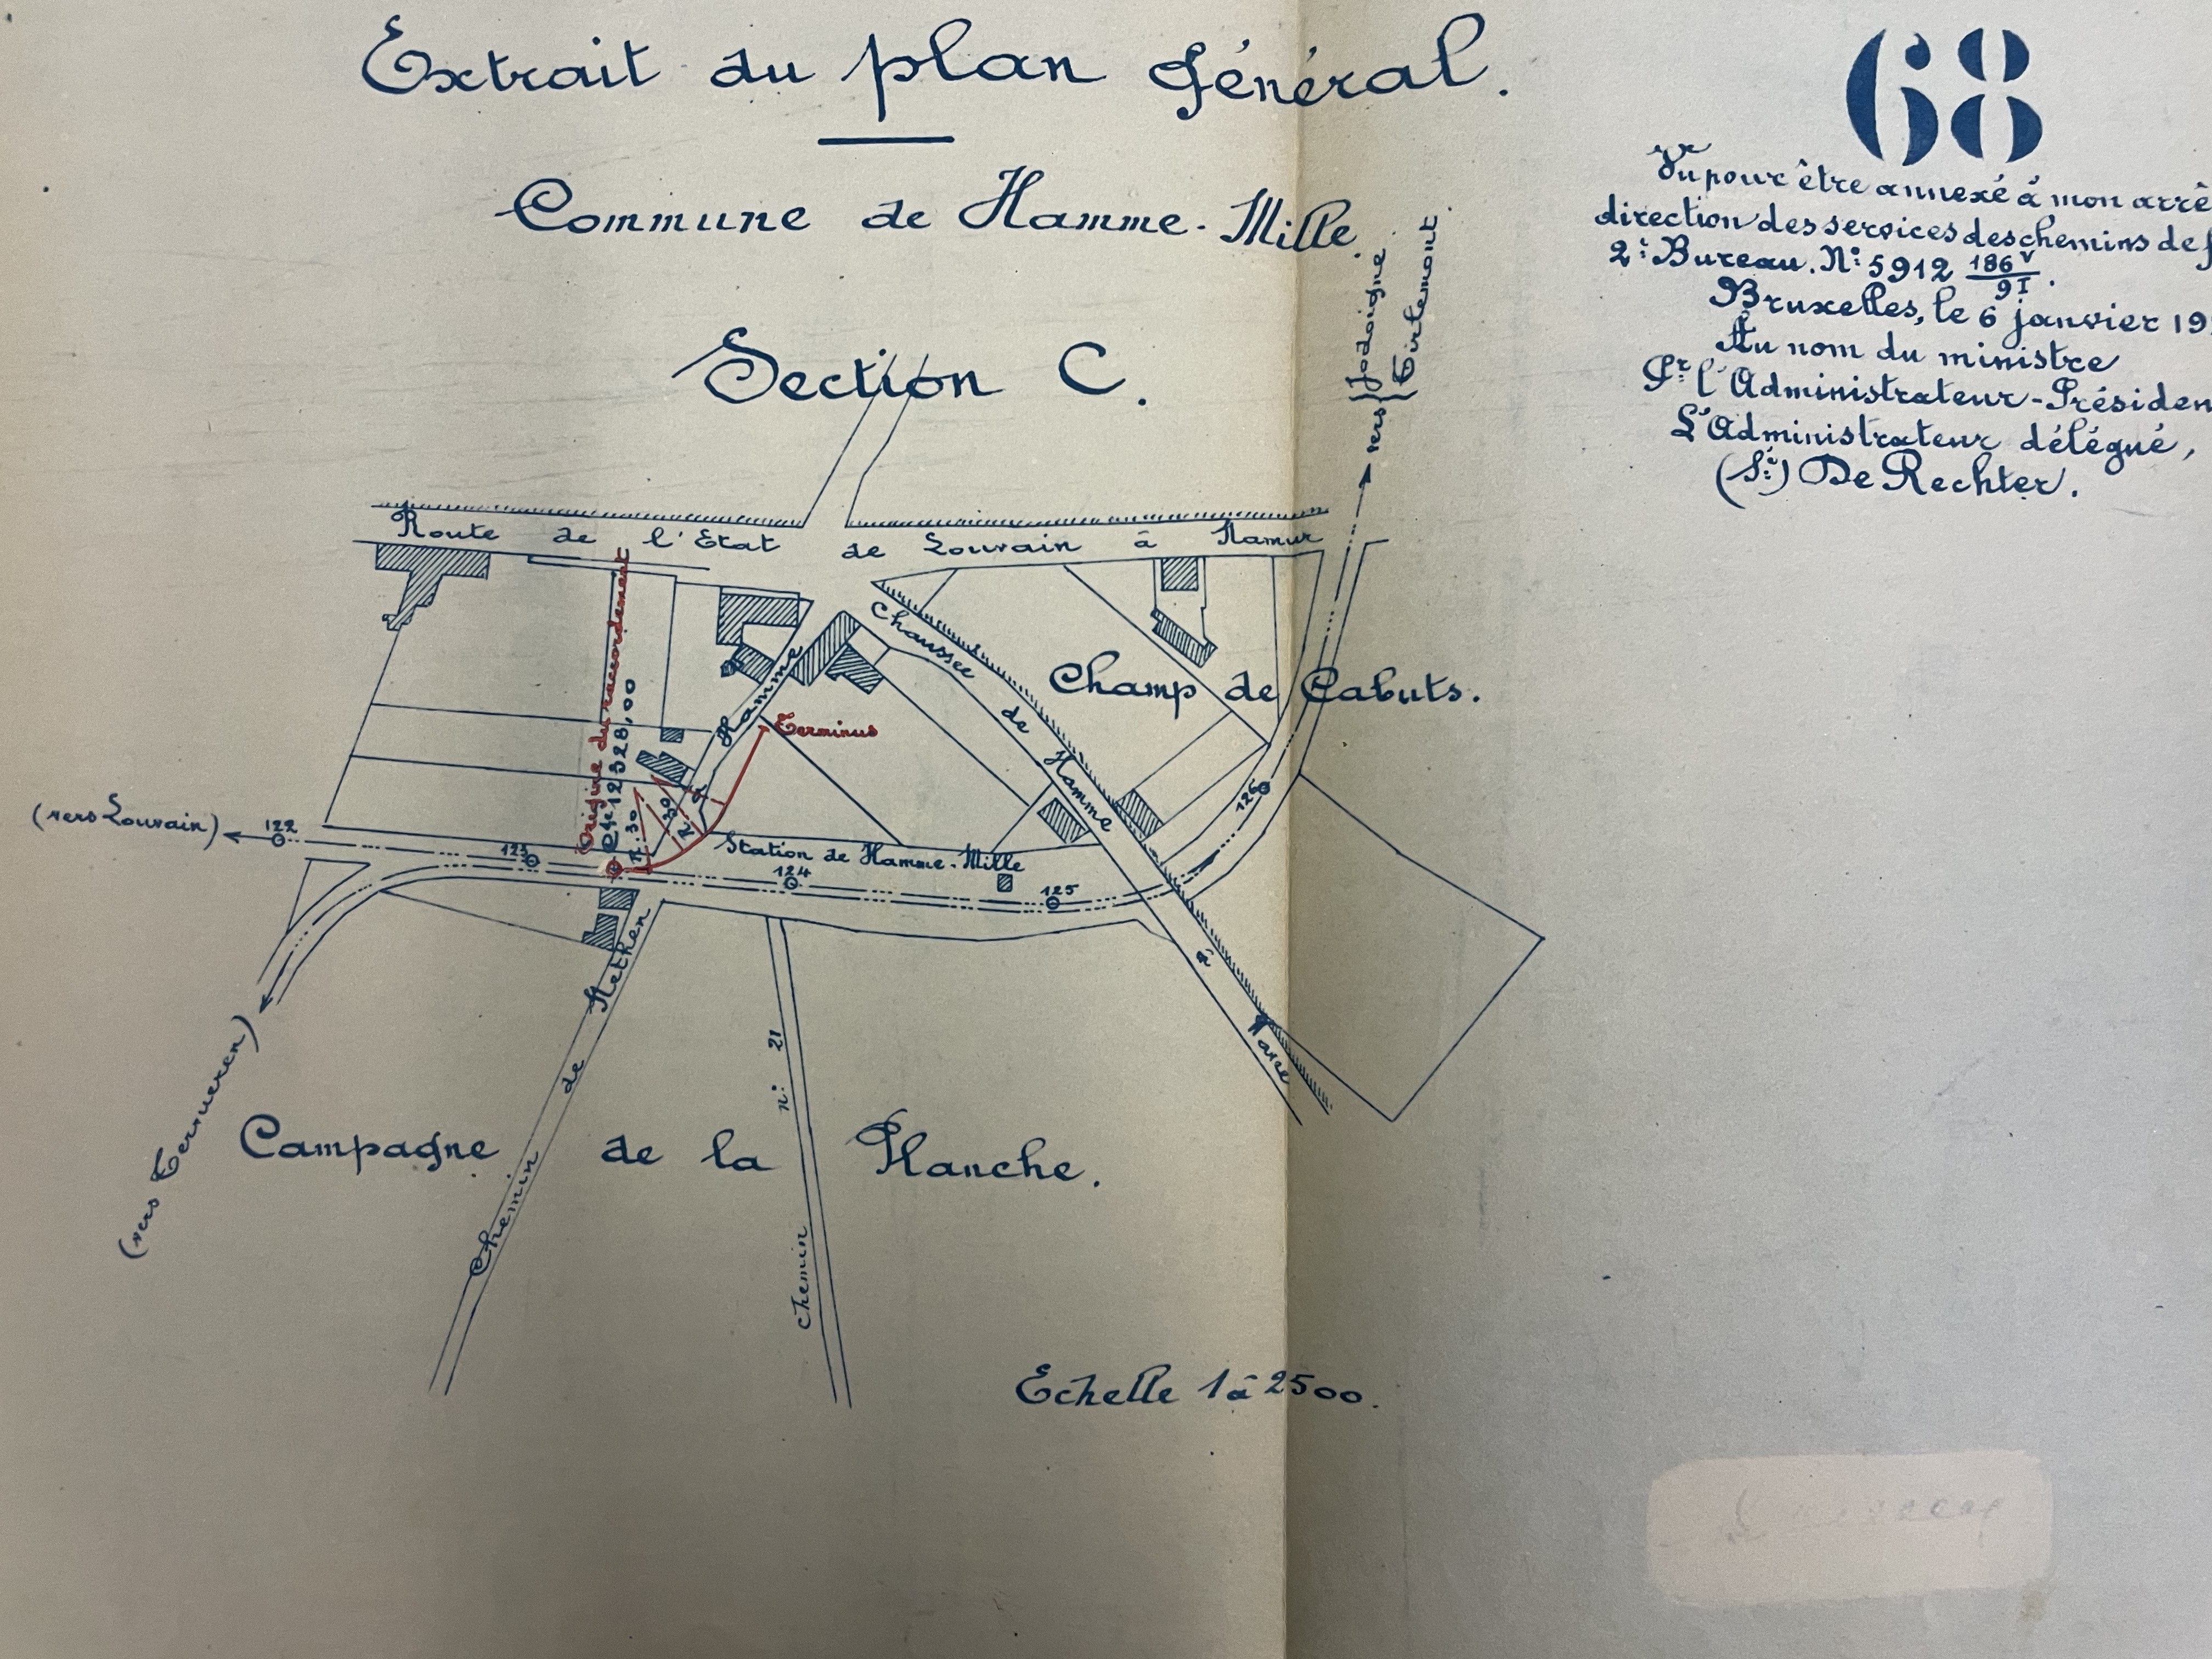 Extrait du plan Général.
68
Vu pour être annexé à mon arrê
direction des services des chemins de f
2e Bureau. No 5912 186V/9I.
Bruxelles, le 6 janvier 19
Au nom du ministre
Pr l'Administrateur-Présiden
L'Administrateur délégué,
(Sé) De Rechter.
Commune de Hamme-Mille.
Section C.
vers { Jodoigne
{ Tirlemont
Route de l'Etat de Louvain à Namur
Origine du raccordement
Ck 12328,00
Chaussée de Hamme à Wavre
Champ de Cabuts.
Terminus
R. 30
R 30
(vers Louvain)
122
123
Station de Hamme-Mille
124
125
126
(vers Tervueren)
Chemin de Nethen à Hamme
Chemin n: 21
Campagne de la Planche.
Echelle 1 à 2500.